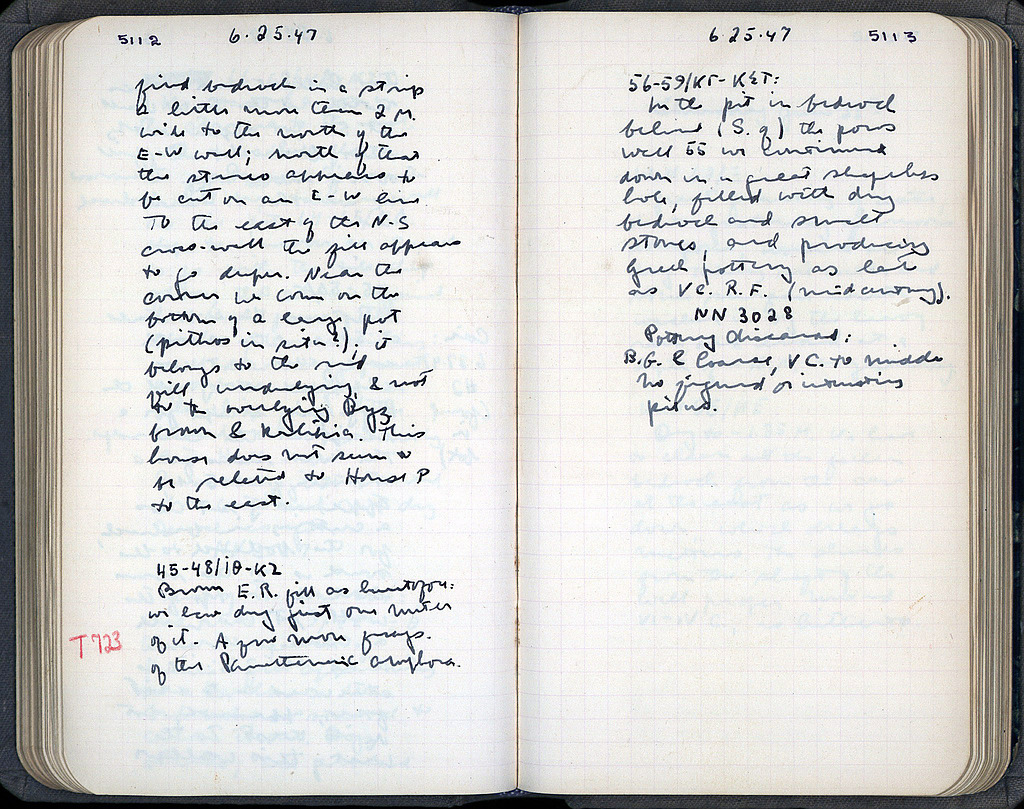 5112
6.25.47
find bedrock in a strip
a little more than 2 M.
wide to the north of the
E-W wall; north of that
the stereo appears to
be cut on an E-W line.
To the east of the N-S
cross-wall the fill appears
to go deeper. Near the
corner we come on the
bottom of a large pot
(pithos in situ?); it
belongs to the red
fill underlying, & not
to the overlying Byz
brown & kalikia. This
house does not seem to
be related to House P
to the east.
45-48/ΙΘ-ΚΖ
Brown E.R. fill as heretofore:
we have dug just one meter
of it. A few more frags.
T 723
of the Panathenaic amphora.
6.25.47
5113
56-59/ΚΓ-ΚΣΤ:
In the pit in bedrock
behind (S. of) the poros
wall 55 we continued
down in a great shapeless
hole, filled with dug
bedrock and small
stones, and producing
Greek pottery as late
as VC. R.F. (mid century).
NN 3028
Pottery discarded:
B.G. & Coarse, VC. to middle
no figured or
pieces.